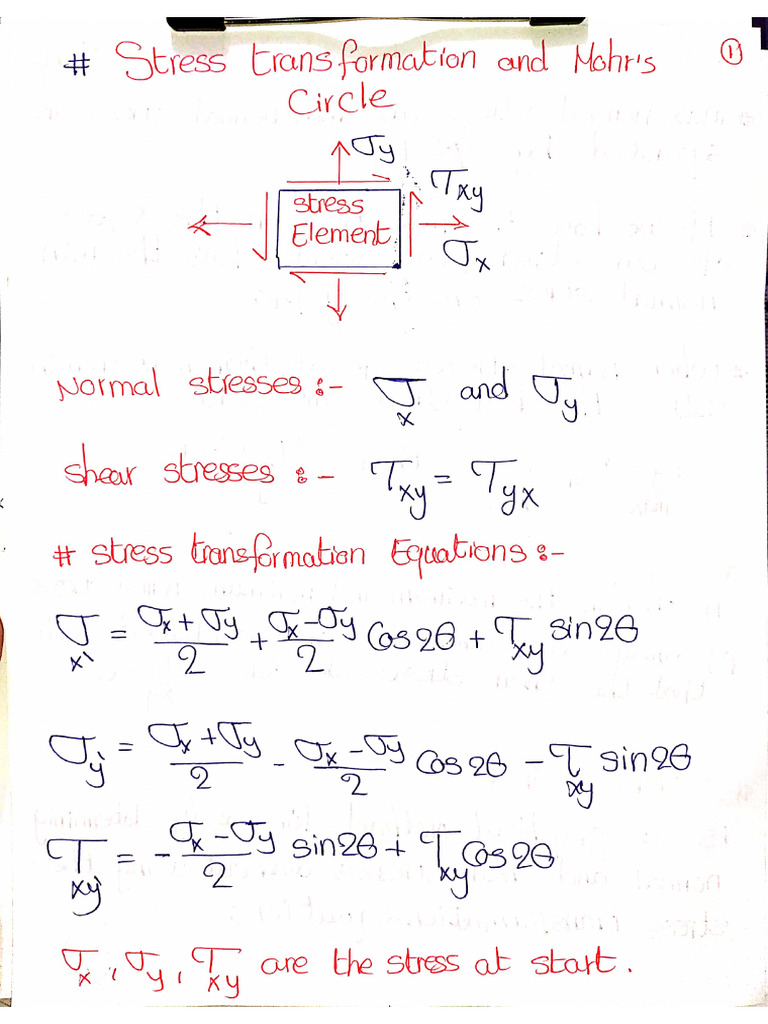 # Stress transformation and Mohr's ①
Circle
σy
τxy
stress
Element
σx
Normal stresses :- σx and σy
shear stresses :- τxy = τyx
# stress transformation Equations :-
σx' = (σx + σy)/2 + (σx - σy)/2 Cos2θ + τxy sin2θ
σy' = (σx + σy)/2 - (σx - σy)/2 Cos2θ - τxy sin2θ
τxy' = -(σx - σy)/2 sin2θ + τxy Cos2θ
σx, σy, τxy are the stress at start.